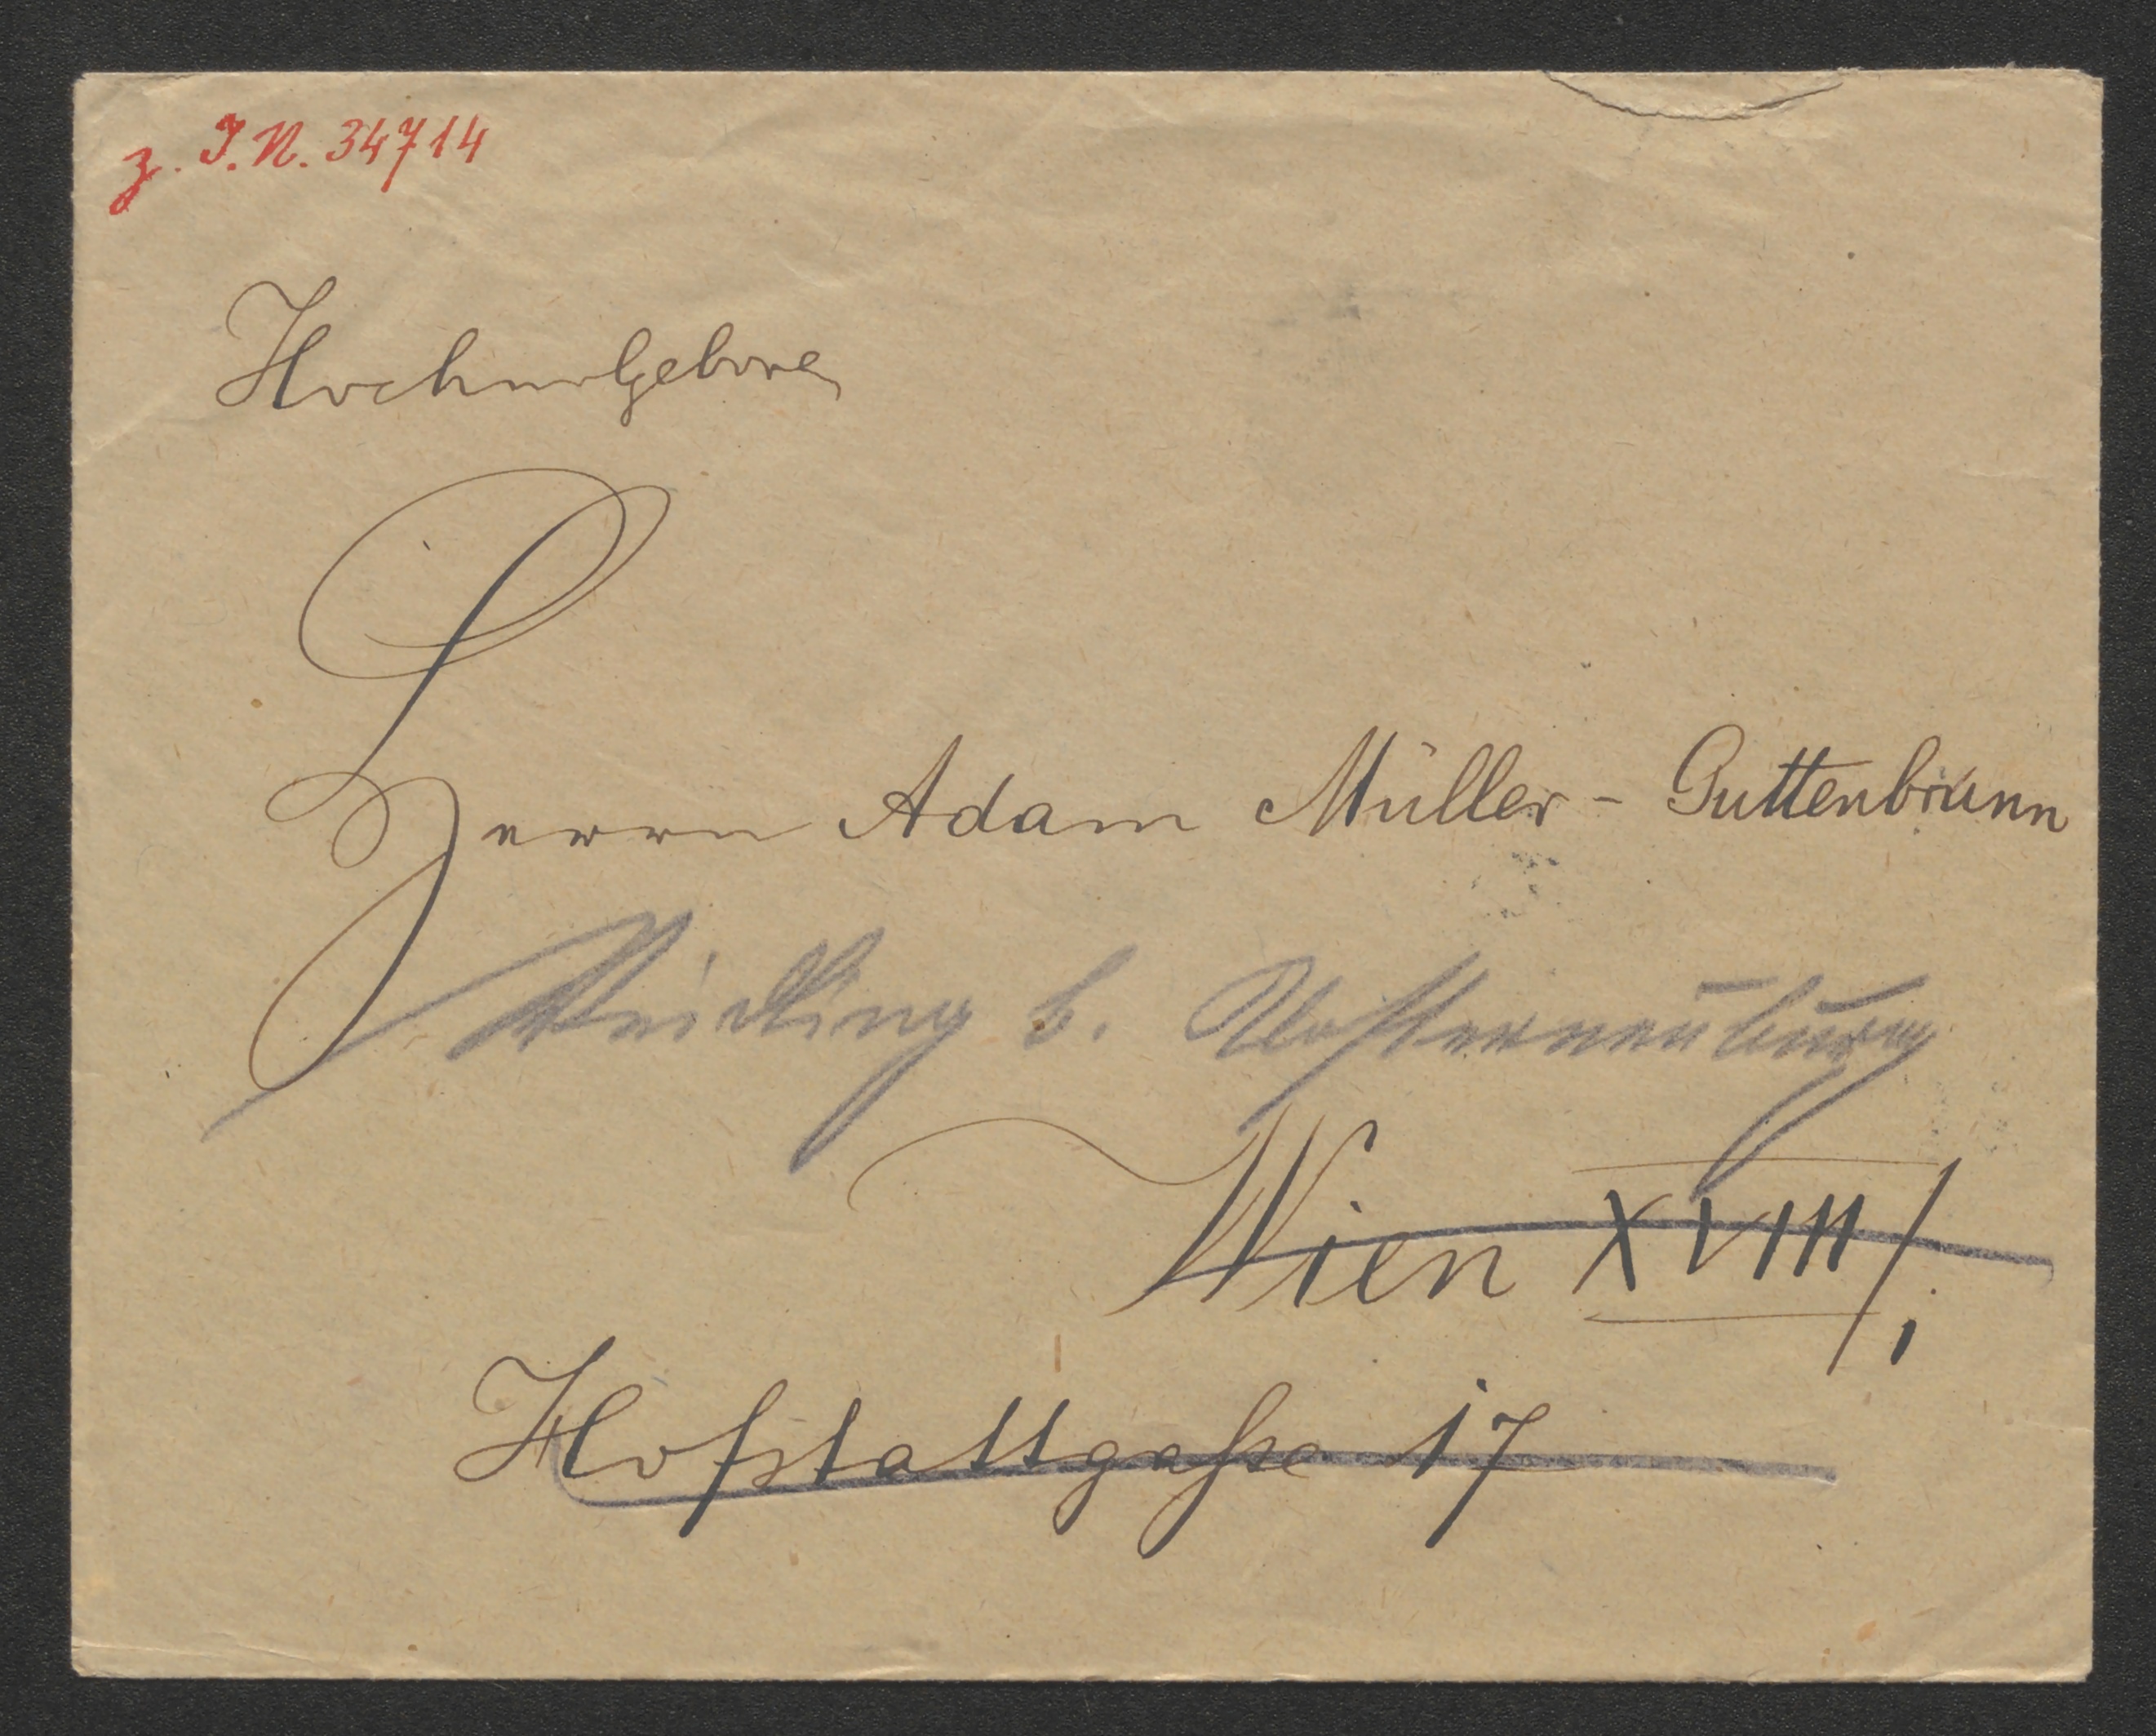 z. I.N. 34714
Hochwolgeboren
Herrn Adam Müller - Guttenbrunn
Weidling b. Klosterneuburg
Wien XVIII/1
Hofstattgasse 17